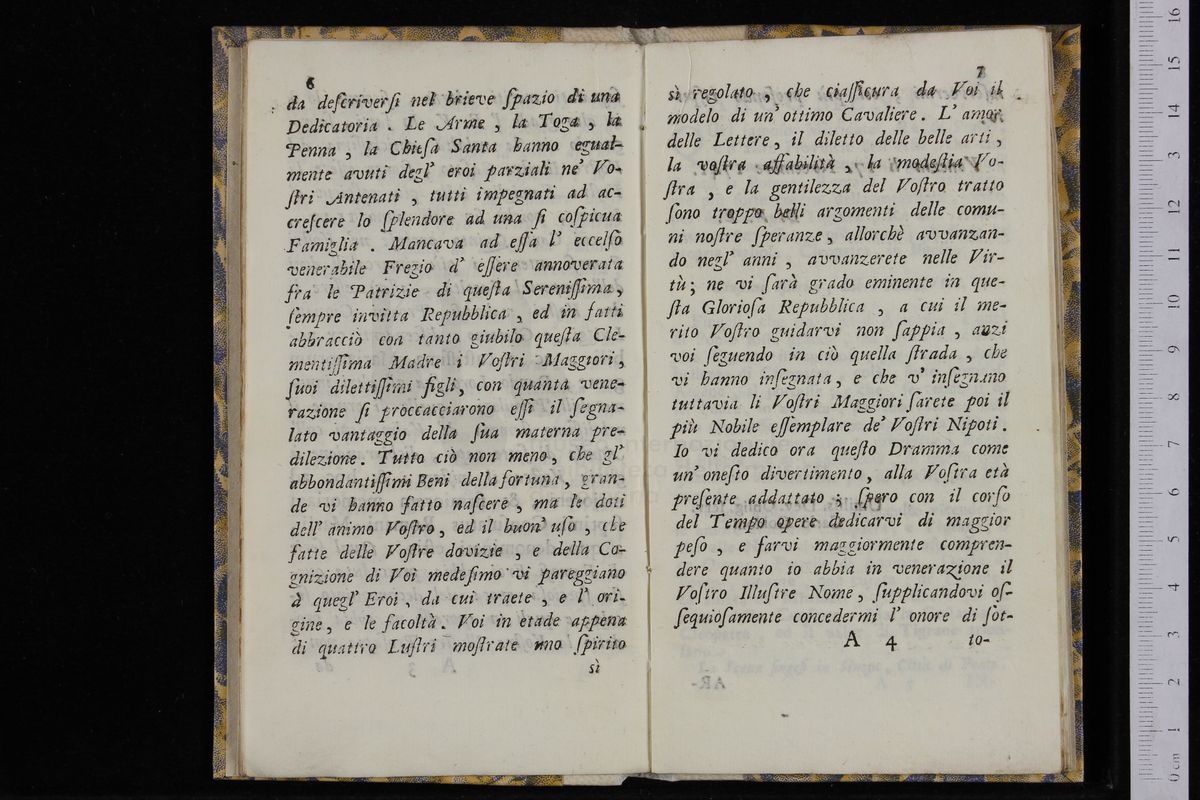 6
da deſcriverſi nel brieve ſpazio di una
Dedicatoria . Le Arme , la Toga , la
Penna , la Chieſa Santa hanno egual-
mente avuti degl' eroi parziali ne' Vo-
ſtri Antenati , tutti impegnati ad ac-
creſcere lo ſplendore ad una ſi coſpicua
Famiglia . Mancava ad eſſa l' eccelſo
venerabile Fregio d' eſſere annoverata
fra le Patrizie di queſta Sereniſſima,
ſempre invitta Repubblica , ed in fatti
abbracciò con tanto giubilo queſta Cle-
mentiſſima Madre i Voſtri Maggiori,
ſuoi dilettiſſimi figli, con quanta vene-
razione ſi proccacciarono eſſi il ſegna-
lato vantaggio della ſua materna pre-
dilezione. Tutto ciò non meno, che gl'
abbondantiſſimi Beni della fortuna , gran-
de vi hanno fatto naſcere , ma le doti
dell' animo Voſtro, ed il buon' uſo , che
fatte delle Voſtre dovizie , e della Co-
gnizione di Voi medeſimo vi pareggiano
à quegl' Eroi, da cui traete , e l' ori-
gine, e le facoltà. Voi in etade appena
di quattro Luſtri moſtrate uno ſpirito
sì
7
sì regolato , che ciaſſicura da Voi il
modelo di un' ottimo Cavaliere. L' amor
delle Lettere, il diletto delle belle arti,
la voſtra affabilità , la modeſtia Vo-
ſtra , e la gentilezza del Voſtro tratto
ſono troppo belli argomenti delle comu-
ni noſtre ſperanze, allorchè avvanzan-
do negl' anni , avvanzerete nelle Vir-
tù; ne vi ſarà grado eminente in que-
ſta Glorioſa Repubblica , a cui il me-
rito Voſtro guidarvi non ſappia , anzi
voi ſeguendo in ciò quella ſtrada , che
vi hanno inſegnata, e che v' inſegnano
tuttavia li Voſtri Maggiori ſarete poi il
più Nobile eſſemplare de' Voſtri Nipoti.
Io vi dedico ora queſto Dramma come
un' oneſto divertimento, alla Voſtra età
preſente addattato ; ſpero con il corſo
del Tempo opere dedicarvi di maggior
peſo , e farvi maggiormente compren-
dere quanto io abbia in venerazione il
Voſtro Illuſtre Nome, ſupplicandovi oſ-
ſequioſamente concedermi l' onore di ſot-
A 4 to-